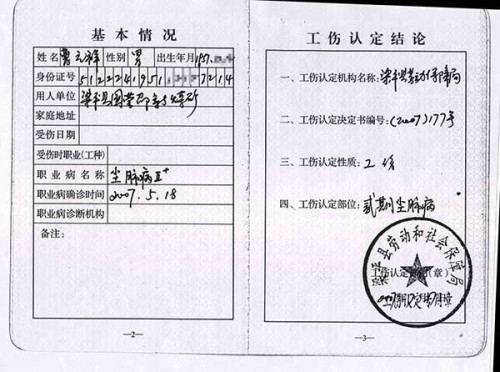 基本情况
姓名 性别 男 出生年月
身份证号
用人单位 梁平县国营
家庭地址
受伤日期
受伤时职业(工种)
职业病名称 尘肺病Ⅱ+
职业病确诊时间 2007.5.18
职业病诊断机构
备注:
—2—
工伤认定结论
一、工伤认定机构名称: 梁平县劳动
二、工伤认定决定书编号: (2007)177号
三、工伤认定性质: 工伤
四、工伤认定部位: 贰期尘肺病
梁平县劳动和社会保障局
工伤认定 (章)
—3—